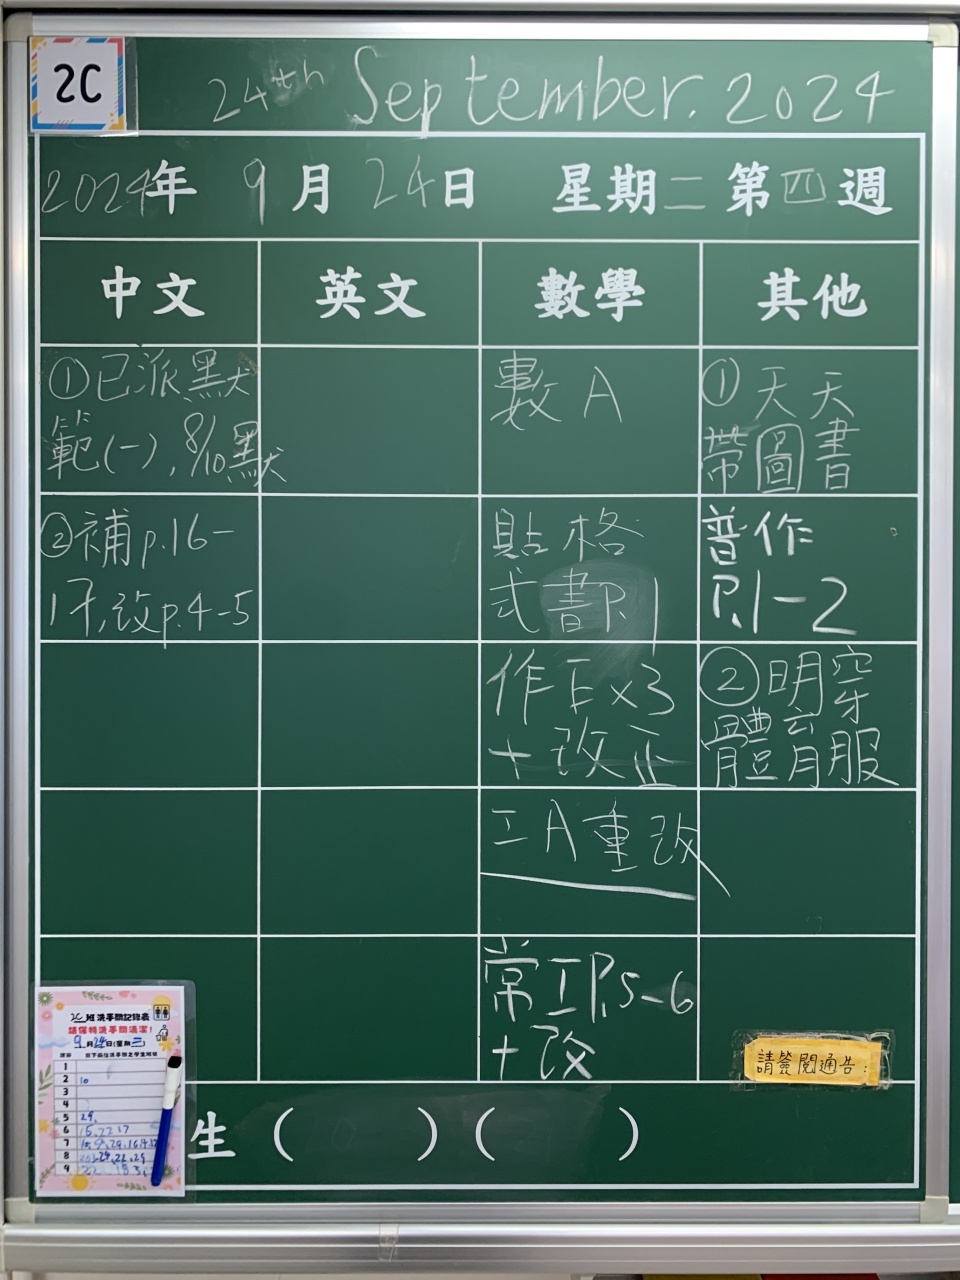 2C
24th September. 2024
2024年 9月24日 星期二 第四週
中文 英文 數學 其他
①已派默
範(一), 8/10默
②補p.16-
17,改p.4-5
數A
貼格
式書P.1
作E×3
+改正
工A重改
常工P.5-6
+改
①天天
帶圖書
普作
P.1-2
②明穿
體育服
請簽閱通告:
2C班洗手間記錄表
請保持洗手間清潔!
9月24日(星期二)
1
2 10
3
4
5 29,
6 15,22 17
7
8
9
生 ( ) ( )